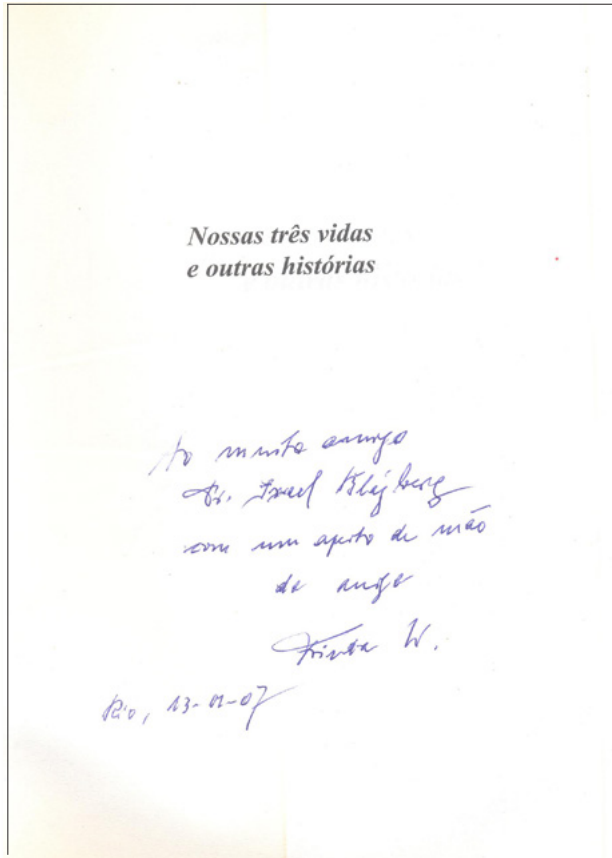 Nossas três vidas
e outras histórias
Ao muito amigo
Dr. Israel Blajberg
com um aperto de mão
da amiga
W.
Rio, 13-01-07